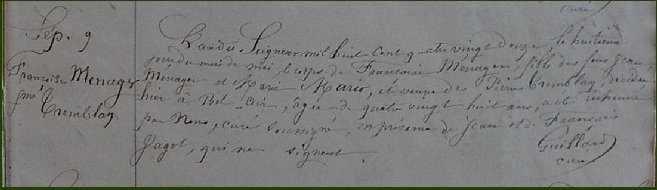 curé
Sép. 9
L'an du Seigneur mil huit cent quatre vingt douze, le huitième
jour du mois de mai, le corps de Françoise Menager, fille des feus Jean
Françoise Menager
Menager et Marie Maris, et veuve de Pierre Tremblay, décédée
Tremblay
hier à Bel Air, âgée de quatre vingt huit ans, a été inhumé
par Nous, curé soussigné, en présence de Jean et de François
Jagot, qui ne signent.
Guillard
curé